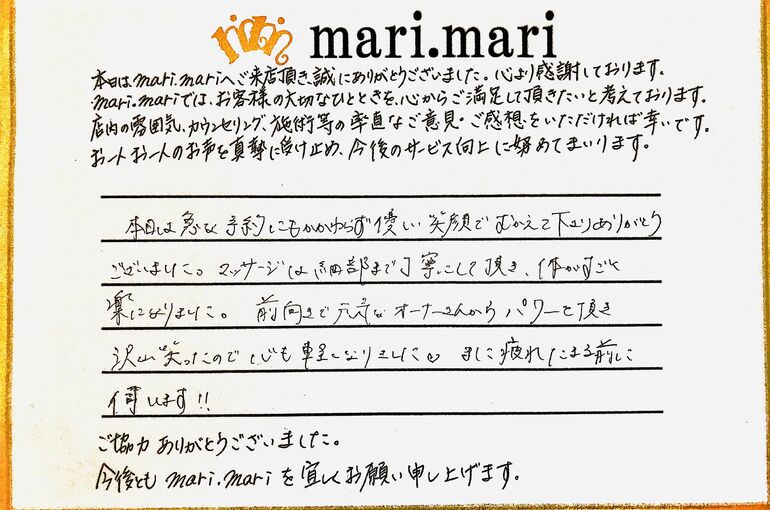 mari.mari
本日はmari.mariへご来店頂き誠にありがとうございました。心より感謝しております。
mari.mariでは、お客様の大切なひとときを、心からご満足して頂きたいと考えております。
店内の雰囲気、カウンセリング、施術等の率直なご意見・ご感想をいただければ幸いです。
お一人お一人のお声を真摯に受け止め、今後のサービス向上に努めてまいります。
本日は急な予約にもかかわらず優しい笑顔でむかえて下さりありがとう
ございました。マッサージは細部まで丁寧にして頂き、体がすごく
楽になりました。前向きで元気なオーナーさんからパワーを頂き
沢山笑ったので心も軽くなりました。また疲れたまる前に
伺います!!
ご協力ありがとうございました。
今後ともmari.mariを宜しくお願い申し上げます。